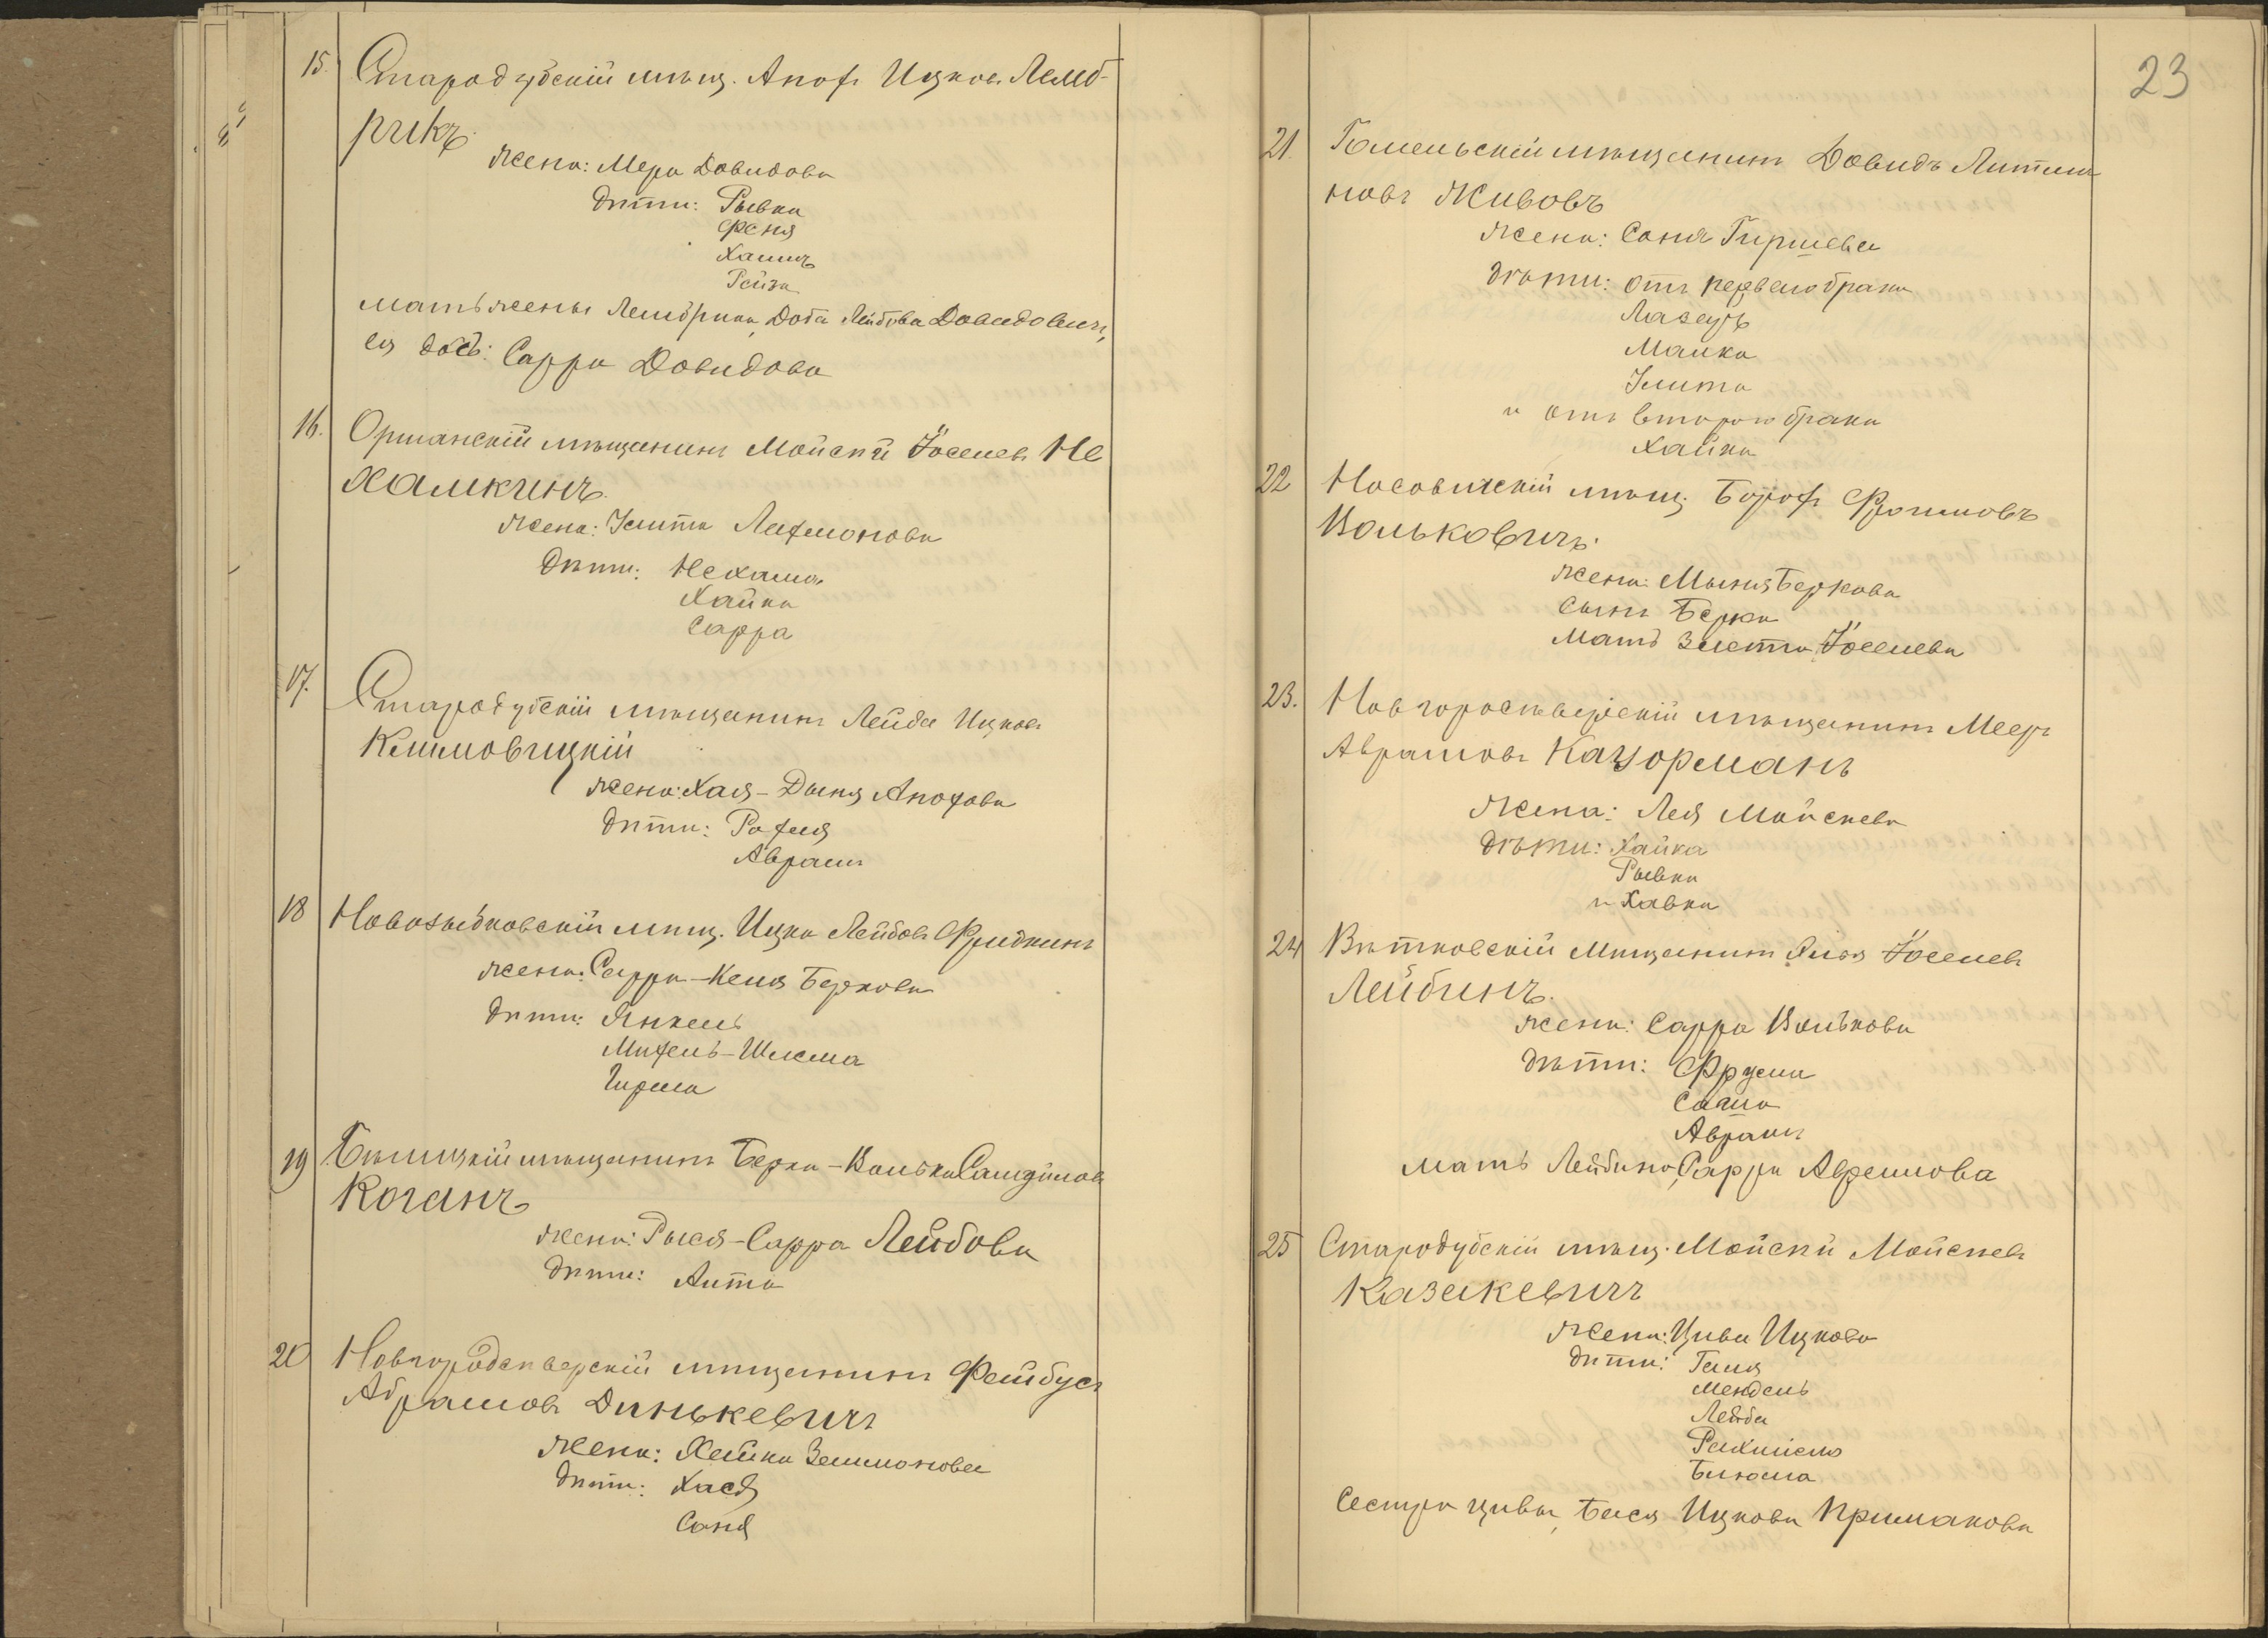 15. Стародубскій мѣщ. Анох Ицков Лемб-
рикъ.
жена: Мера Довидова
дѣти: Рывка
Феня
Хаимъ
Рейза
мать жены Лембрика, Доба Лейбова Довидович,
ея дочь: Сарра Довидова
16. Оршанскій мѣщанинъ Мойсѣй Іоселев Не
хамкинъ.
жена: Злита
дѣти: Нехама
Хайка
Сарра
17. Стародубскій мѣщанинъ Лейба Ицков
Климовицкій
жена: Хая-Дыня Анохова
дѣти: Рахиля
Абрамъ
18 Новозыбковскій мѣщ. Ицка Лейбов Фридкинъ
жена: Сарра-Кеня Беркова
дѣти: Янкель
Михель-Шлема
Гирша
19 Бѣлицкій мѣщанинъ Берка-Волька
Коганъ
жена: Рыся-Сарра Лейбова
дѣти: Анта
20 Новгородсѣверскій мѣщанинъ Фейбус
Абрамов Динькевичъ
жена: Хейка Зелмонова
дѣти: Хася
Соня
23
21. Гомельскій мѣщанинъ Довидъ Литми
новъ Живовъ
жена: Соня Гиршева
дѣти: отъ перваго брака
Лазарь
Манка
Злита
и отъ второго брака
Хайка
22 Носовичскій мѣщ. Борох Фроимовъ
Вольковичъ.
жена: Мыня Беркова
сынъ Берка
мать Злета Іоселева
23. Новгородсѣверскій мѣщанинъ Меер
Абрамовъ Кацорманъ
Жена: Лея Мойсеева
дѣти: Хайка
Рывка
и Хавка
24 Вѣтковскій мѣщанинъ Илья Іоселев
Лейбинъ.
жена: Сарра Волькова
дѣти: Фрума
Соша
Абрамъ
мать Лейбина, Сарра Афремова
25 Стародубскій мѣщ. Мойсѣй Мойсеев
Казакевичъ
жена: Цива Ицкова
дѣти: Геня
Мендель
Лейба
Рахміель
Блюма
Сестра Цивы, Бася Ицкова Примакова